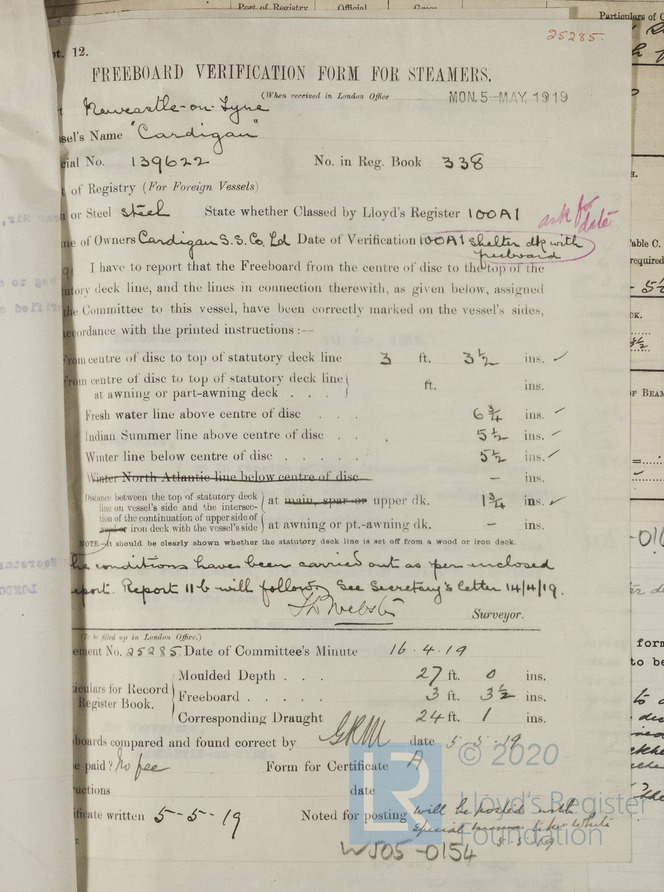 Port of Registry Official Gross
Particulars of
25285.
pt. 12.
FREEBOARD VERIFICATION FORM FOR STEAMERS.
(When received in London Office MON. 5-MAY. 1919
Newcastle-on-Tyne
sel's Name "Cardigan"
cial No. 139622 No. in Reg. Book 338
of Registry (For Foreign Vessels)
or Steel steel State whether Classed by Lloyd's Register 100A1
ask for date
ne of Owners Cardigan S.S. Co. Ld Date of Verification 100A1 shelter dk with
freeboard
I have to report that the Freeboard from the centre of disc to the top of the
utory deck line, and the lines in connection therewith, as given below, assigned
the Committee to this vessel, have been correctly marked on the vessel's sides,
ccordance with the printed instructions :—
From centre of disc to top of statutory deck line 3 ft. 3½ ins. ✓
From centre of disc to top of statutory deck line
at awning or part-awning deck . . . ft. ins.
Fresh water line above centre of disc . . . 6¾ ins. ✓
Indian Summer line above centre of disc . . 5½ ins. ✓
Winter line below centre of disc . . . . . 5½ ins. ✓
Winter North Atlantic line below centre of disc – ins.
Distance between the top of statutory deck
line on vessel's side and the intersec-
tion of the continuation of upper side of
wood or iron deck with the vessel's side
at main, spar or upper dk. 1¾ ins. ✓
at awning or pt.-awning dk. – ins.
NOTE—It should be clearly shown whether the statutory deck line is set off from a wood or iron deck.
he conditions have been carried out as per enclosed
eport. Report 11b will follow. See Secretary's letter 14/4/19.
Webster
Surveyor.
(To be filled up in London Office.)
ement No. 25285 Date of Committee's Minute 16.4.19
iculars for Record
Register Book.
Moulded Depth . . . 27 ft. 0 ins.
Freeboard . . . . . 3 ft. 3½ ins.
Corresponding Draught 24 ft. 1 ins.
boards compared and found correct by GRM date 5-5-19
e paid? No fee Form for Certificate A
uctions date
ificate written 5-5-19 Noted for posting will be posted with
special
W505-0154
© 2020
LR
Lloyd's Register
Foundation